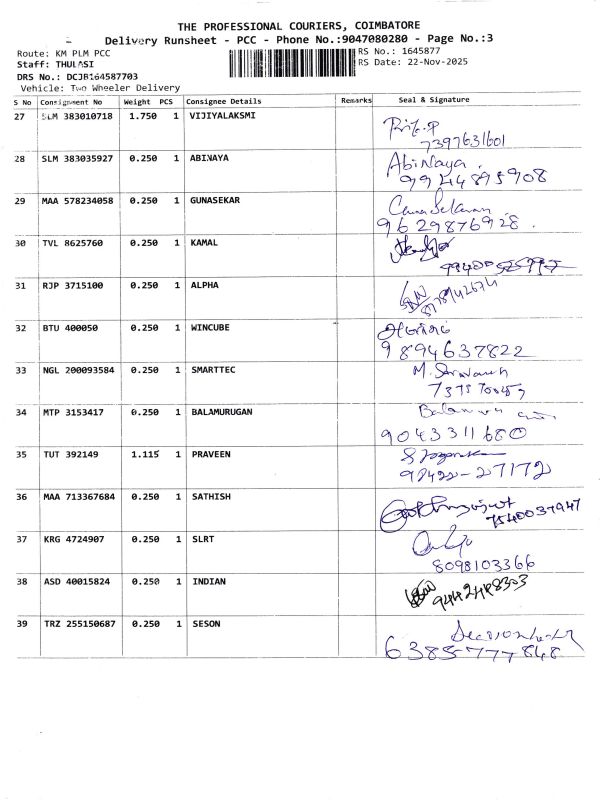 THE PROFESSIONAL COURIERS, COIMBATORE
Delivery Runsheet - PCC - Phone No.:9047080280 - Page No.:3
Route: KM PLM PCC
RS No.: 1645877
Staff: THULASI
RS Date: 22-Nov-2025
DRS No.: DCJB164587703
Vehicle: Two Wheeler Delivery
S No Consignment No Weight PCS Consignee Details Remarks Seal & Signature
27 SLM 383010718 1.750 1 VIJIYALAKSMI
7397631601
28 SLM 383035927 0.250 1 ABINAYA AbiNaya.
9944895908
29 MAA 578234058 0.250 1 GUNASEKAR
9629876928.
30 TVL 8625760 0.250 1 KAMAL
31 RJP 3715100 0.250 1 ALPHA
32 BTU 400050 0.250 1 WINCUBE
9894637822
33 NGL 200093584 0.250 1 SMARTTEC
34 MTP 3153417 0.250 1 BALAMURUGAN
9043311680
35 TUT 392149 1.115 1 PRAVEEN
98422-27172
36 MAA 713367684 0.250 1 SATHISH
7540037947
37 KRG 4724907 0.250 1 SLRT
8098103366
38 ASD 40015824 0.250 1 INDIAN
9442448303
39 TRZ 255150687 0.250 1 SESON
6385-777848